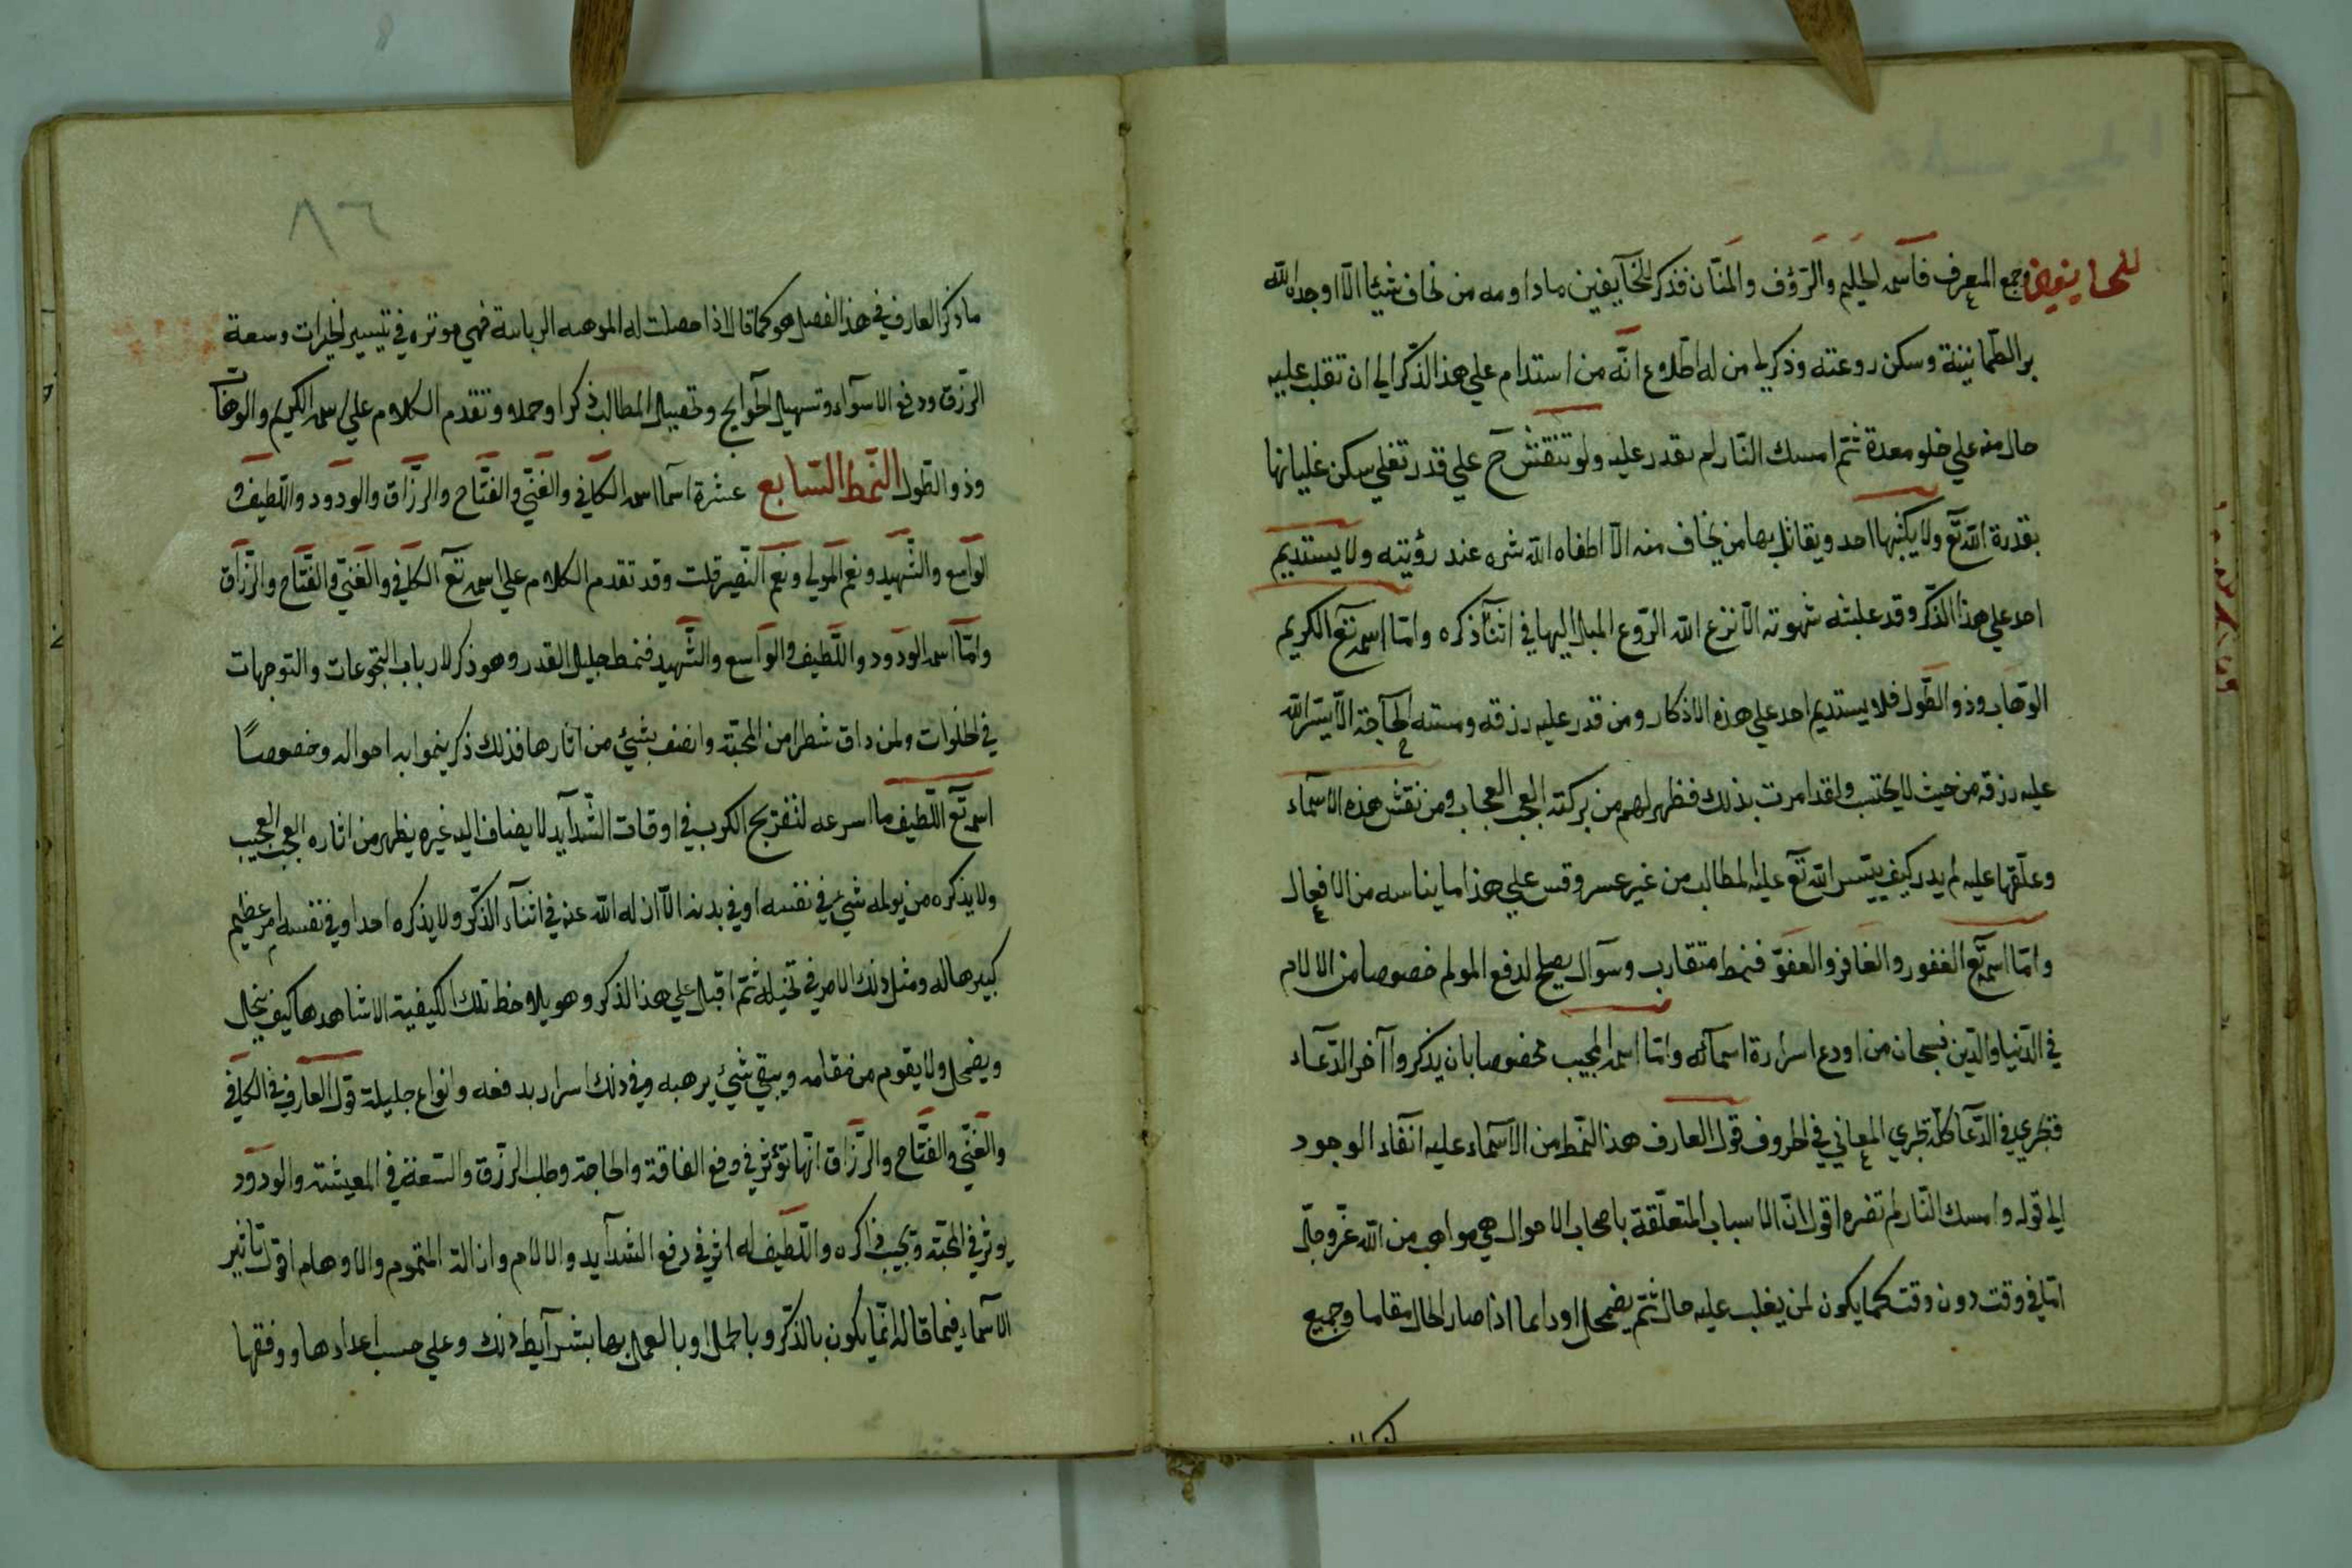 للخايفين وجمع المعرف فاسمه الحليم والرّؤف والمنّان فذكر للخآيفين ما داومه من نحاف شيئا الّا اوجده الله
بر الطّمانينة وسكن روعته وذكر لي من له اطّلاع انّه من استدام علي هذا الذّكر الي ان تقلب عليه
حال منه علي خلو معدة ثمّ امسك النّار لم تقدر عليه ولو تنقش حٓ علي قدر تغلي سكن غليانها
بقدرة الله تع ولا يكتبها احد ويقابل بها من يخاف منه الّا اطفاه الله شره عند رؤيته ولا يستديم
احد علي هذا الذّكر وقد غلبته شهوته الّا نزع الله الرّوع الميال اليها في اثنآء ذكره وامّا اسمه تع الكريم
الوهّاب وذو الطّول فلا يستديم احد علي هذه الاذكار ومن قدر عليه رزقه ومسته الحآجة الّا يسّر الله
عليه رزقه من حيث لا يحتسب ولقد امرت بذلك فظهر لهم من بركته العجب العجاب ومن نقش هذه الاسماء
وعلّقها عليه لم يدر كيف ييسر الله تع عليه المطالب من غير عسر وقس علي هذا ما يناسبه من الافعال
وامّا اسمه تع الغفور والغافر والعفوّ فنمط متقارب وسوآل يصلح لدفع المولم خصوصا من الالام
في الدّنيا والدّين فسبحان من اودع اسراره اسمآئه وامّا اسمه المجيب مخصوصا بان يذكر وا آخر الدّعاء
فتجري في الدّعآ كلّه تجري المعاني في الحروف قول العارف هذا النّمط من الاسماء عليه انفاد الوجود
الي قوله وامسك النّار لم تضره اقول انّ الاسباب المتعلّقة باصحاب الاحوال هي مواهب من الله عزّ وجلّ
امّا في وقت دون وقت كما يكون لمن يغلب عليه حال ثمّ يضمحل او دايما اذا صار الحال مقاما وجميع
٨٦
ما ذكر العارف في هذا الفصل هو كما قال اذا حصلت له الموهبه الربانية فهي موثره في تيسير الخيرات وسعة
الرّزق ودفع الاسوآء وتسهيل الحوآيج وتحصيل المطالب ذكرا وحملا وتقدم الكلام علي اسمه الكريم والوهّاب
وذو الطّول النّمط السّابع عشرة اسما اسمه الكافي والغنّي والفتّاح والرزّاق والودود واللّطيف و
الواسع والشّهيد ونعم المولي ونعم النّصير قلت وقد تقدم الكلام علي اسمه تع الكافي والغنيّ والفتّاح والرزّاق
وامّا اسمه الودود واللّطيف والواسع والشّهيد فنمط جليل القدر وهو ذكر لارباب التجوعات والتوجهات
في الخلوات ولمن ذاق شطرا من المحبّة واتصف بشيئ من اثارها فذلك ذكر ينموا به احواله وخصوصًا
اسمه تع اللّطيف ما اسرعه لتفريج الكرب في اوقات الشّدآيد لا يضاف اليه غيره يظهر من اثاره العجب العجيب
ولا يذكره من يولمه شيئ في نفسه او في بدنه الّا ازاله الله عنه في اثنآء الذّكر ولا يذكره احد او في نفسه امر عظيم
كبير هاله ومثل ذلك الامر في تخيله ثمّ اقبل علي هذا الذّكر وهو يلاحظ تلك الكيفية الا شاهدها كيف تنحل
ويضمحل ولا يقوم من مقامه ويبقي شيئ يرهبه وفي ذلك اسرار بدفعه وانواع جليلة قول العارف في الكافي
والغنّي والفتّاح والرزّاق انّها تؤثر في دفع الفاقة والحاجة وطلب الرزق والسّعة في المعيشة والودود
يوثر في المحبّة وتحبيب ذاكره واللّطيف له اثر في دفع الشدآيد والالام وازالة الهموم والاوهام اقول تاثير
الاسماء فيما قاله انّما يكون بالذّكر وبالحمل او بالعمل بها بشرآيط ذلك وعلي حسب اعدادها ووفقها